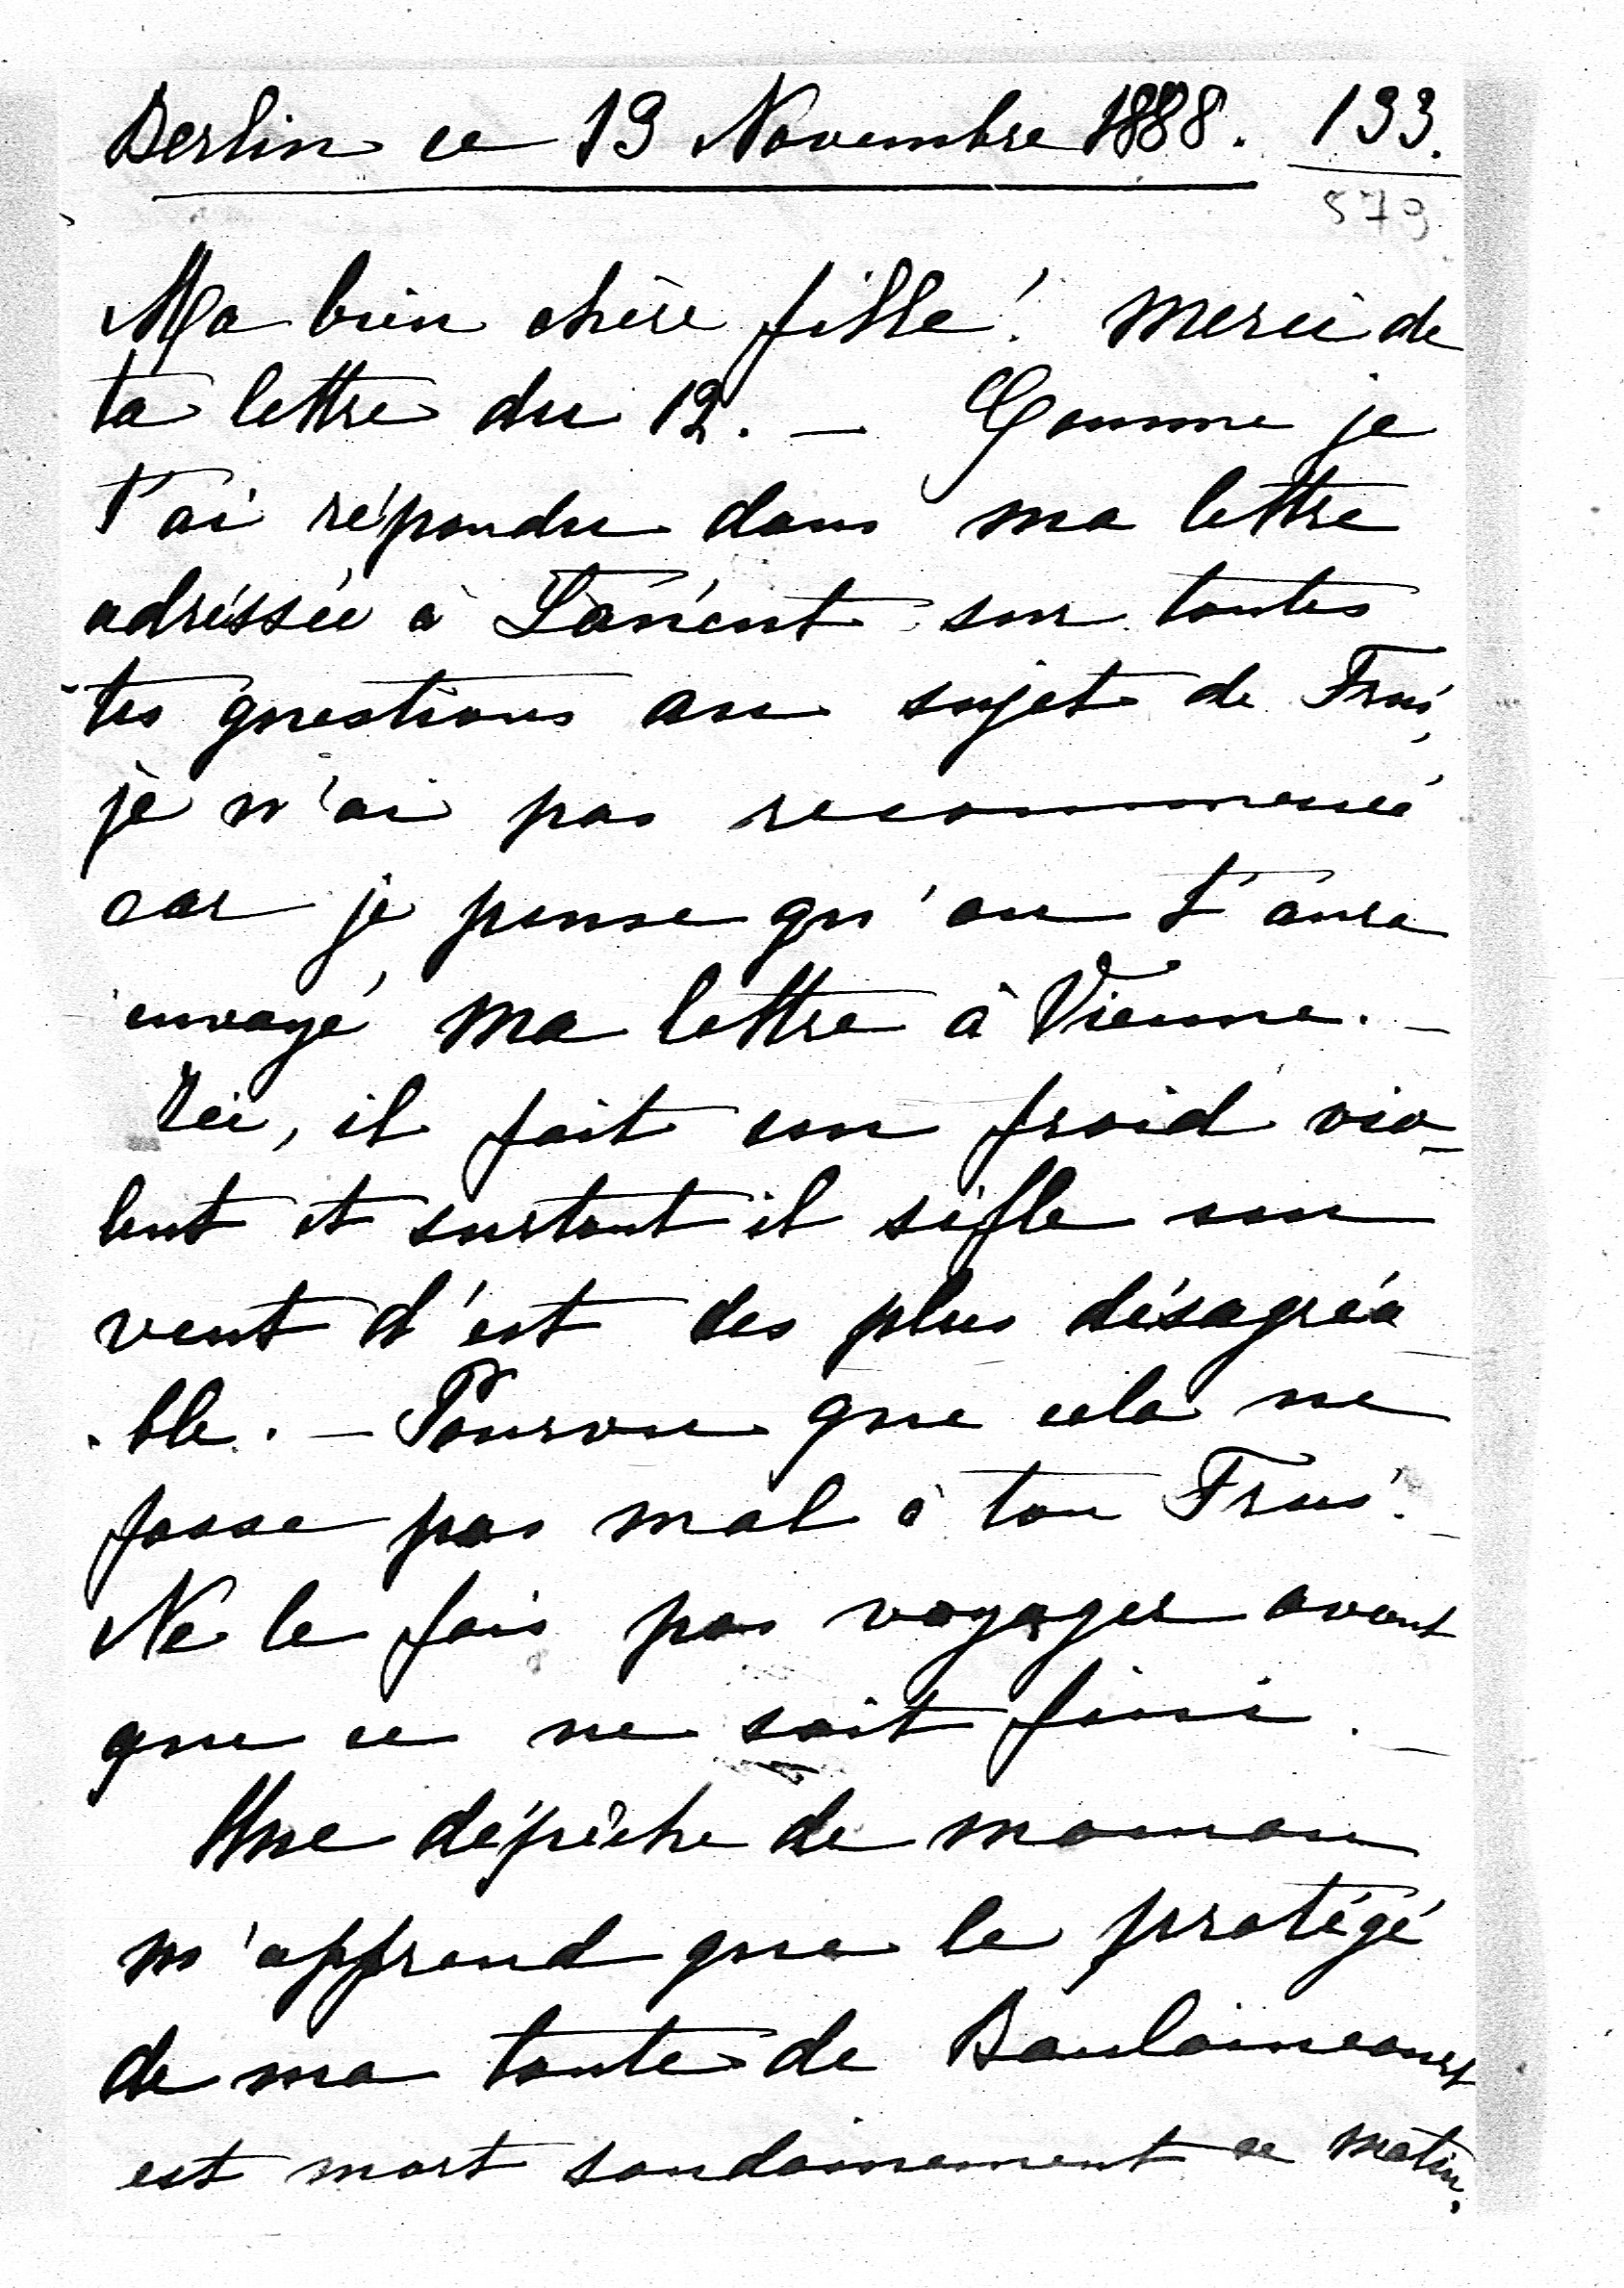 Berlin ce 13 Novembre 1888. 133.
579
Ma bien chère fille! merci de
ta lettre du 12. — Comme je
t'ai répondu dans ma lettre
adréssée à Lancut sur toutes
tes questions au sujet de Frus,
je n'ai pas recommencé
car je pense qu'on t'aura
envoyé ma lettre à Vienne. —
Ici, il fait un froid vio-
lent et surtout il sifle un
vent d'est des plus désagréa
ble. — Pourvu que cela ne
fasse pas mal à ton Frus. —
Ne le fais pas voyager avant
que ce ne soit fini. —
Une dépêche de maman
m'apprend que le protégé
de ma tante de Baulaincourt
est mort soudainement ce matin.